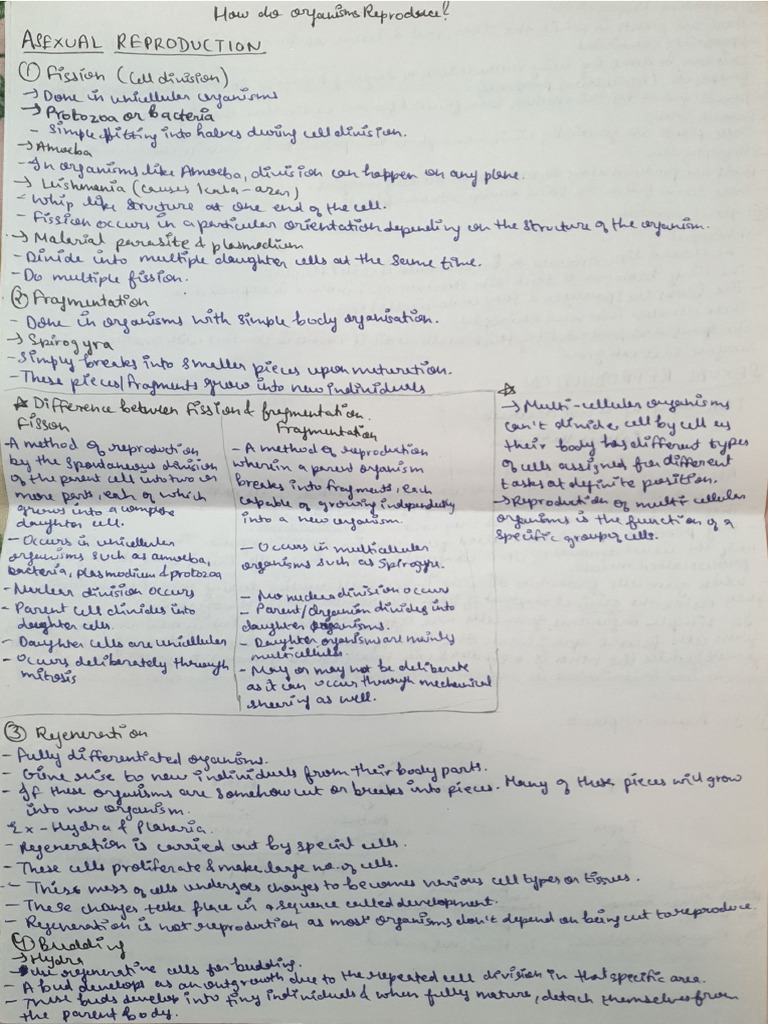 How do organisms Reproduce?
ASEXUAL REPRODUCTION
① Fission (Cell division)
→ Done in unicellular organisms
→ Protozoa or bacteria
- Simple splitting into halves during cell division.
→ Amoeba
- In organisms like Amoeba, division can happen on any plane.
→ Leishmania (causes kala-azar)
- Whip like structure at one end of the cell.
- Fission occurs in a particular orientation depending on the structure of the organism.
→ Malarial parasite & plasmodium
- Divide into multiple daughter cells at the same time.
- Do multiple fission.
② Fragmentation
- Done in organisms with simple body organisation.
→ Spirogyra
- Simply breaks into smaller pieces upon maturation.
- These pieces/fragments grow into new individuals
☆ Difference between Fission & fragmentation.
Fisson
- A method of reproduction
by the spontaneous division
of the parent cell into two or
more parts, each of which
grows into a complete
daughter cell.
- Occurs in unicellular
organisms such as amoeba,
bacteria, plasmodium & protozoa
- Nuclear division occurs
- Parent cell divides into
daughter cells.
- Daughter cells are unicellular
- Occurs deliberately through
mitosis
Fragmentation
- A method of reproduction
wherein a parent organism
breaks into fragments, each
capable of growing independently
into a new organism.
- Occurs in multicellular
organisms such as spirogyra.
- No nuclear division occurs
- Parent/Organism divides into
daughter organisms.
- Daughter organisms are mainly
multicellular.
- May or may not be deliberate
as it can occur through mechanical
shearing as well.
☆
→ Multi-cellular organisms
can't divide cell by cell as
their body has different types
of cells assigned for different
tasks at definite position.
→ Reproduction of multi cellular
organisms is the function of a
specific group of cells.
③ Regeneration
- Fully differentiated organisms.
- Give rise to new individuals from their body parts.
- If these organisms are somehow cut or breaks into pieces. Many of these pieces will grow
into new organism.
Ex - Hydra & Planaria.
- Regeneration is carried out by special cells.
- These cells proliferate & make large no. of cells.
- This mess of cells undergoes changes to becomes various cell types or tissues.
- These changes take place in a sequence called development.
- Regeneration is not reproduction as most organisms don't depend on being cut to reproduce.
④ Budding
→ Hydra
- Use regenerative cells for budding.
- A bud develops as an outgrowth due to the repeated cell division in that specific area.
- These buds develop into tiny individuals & when fully mature, detach themselves from
the parent body.